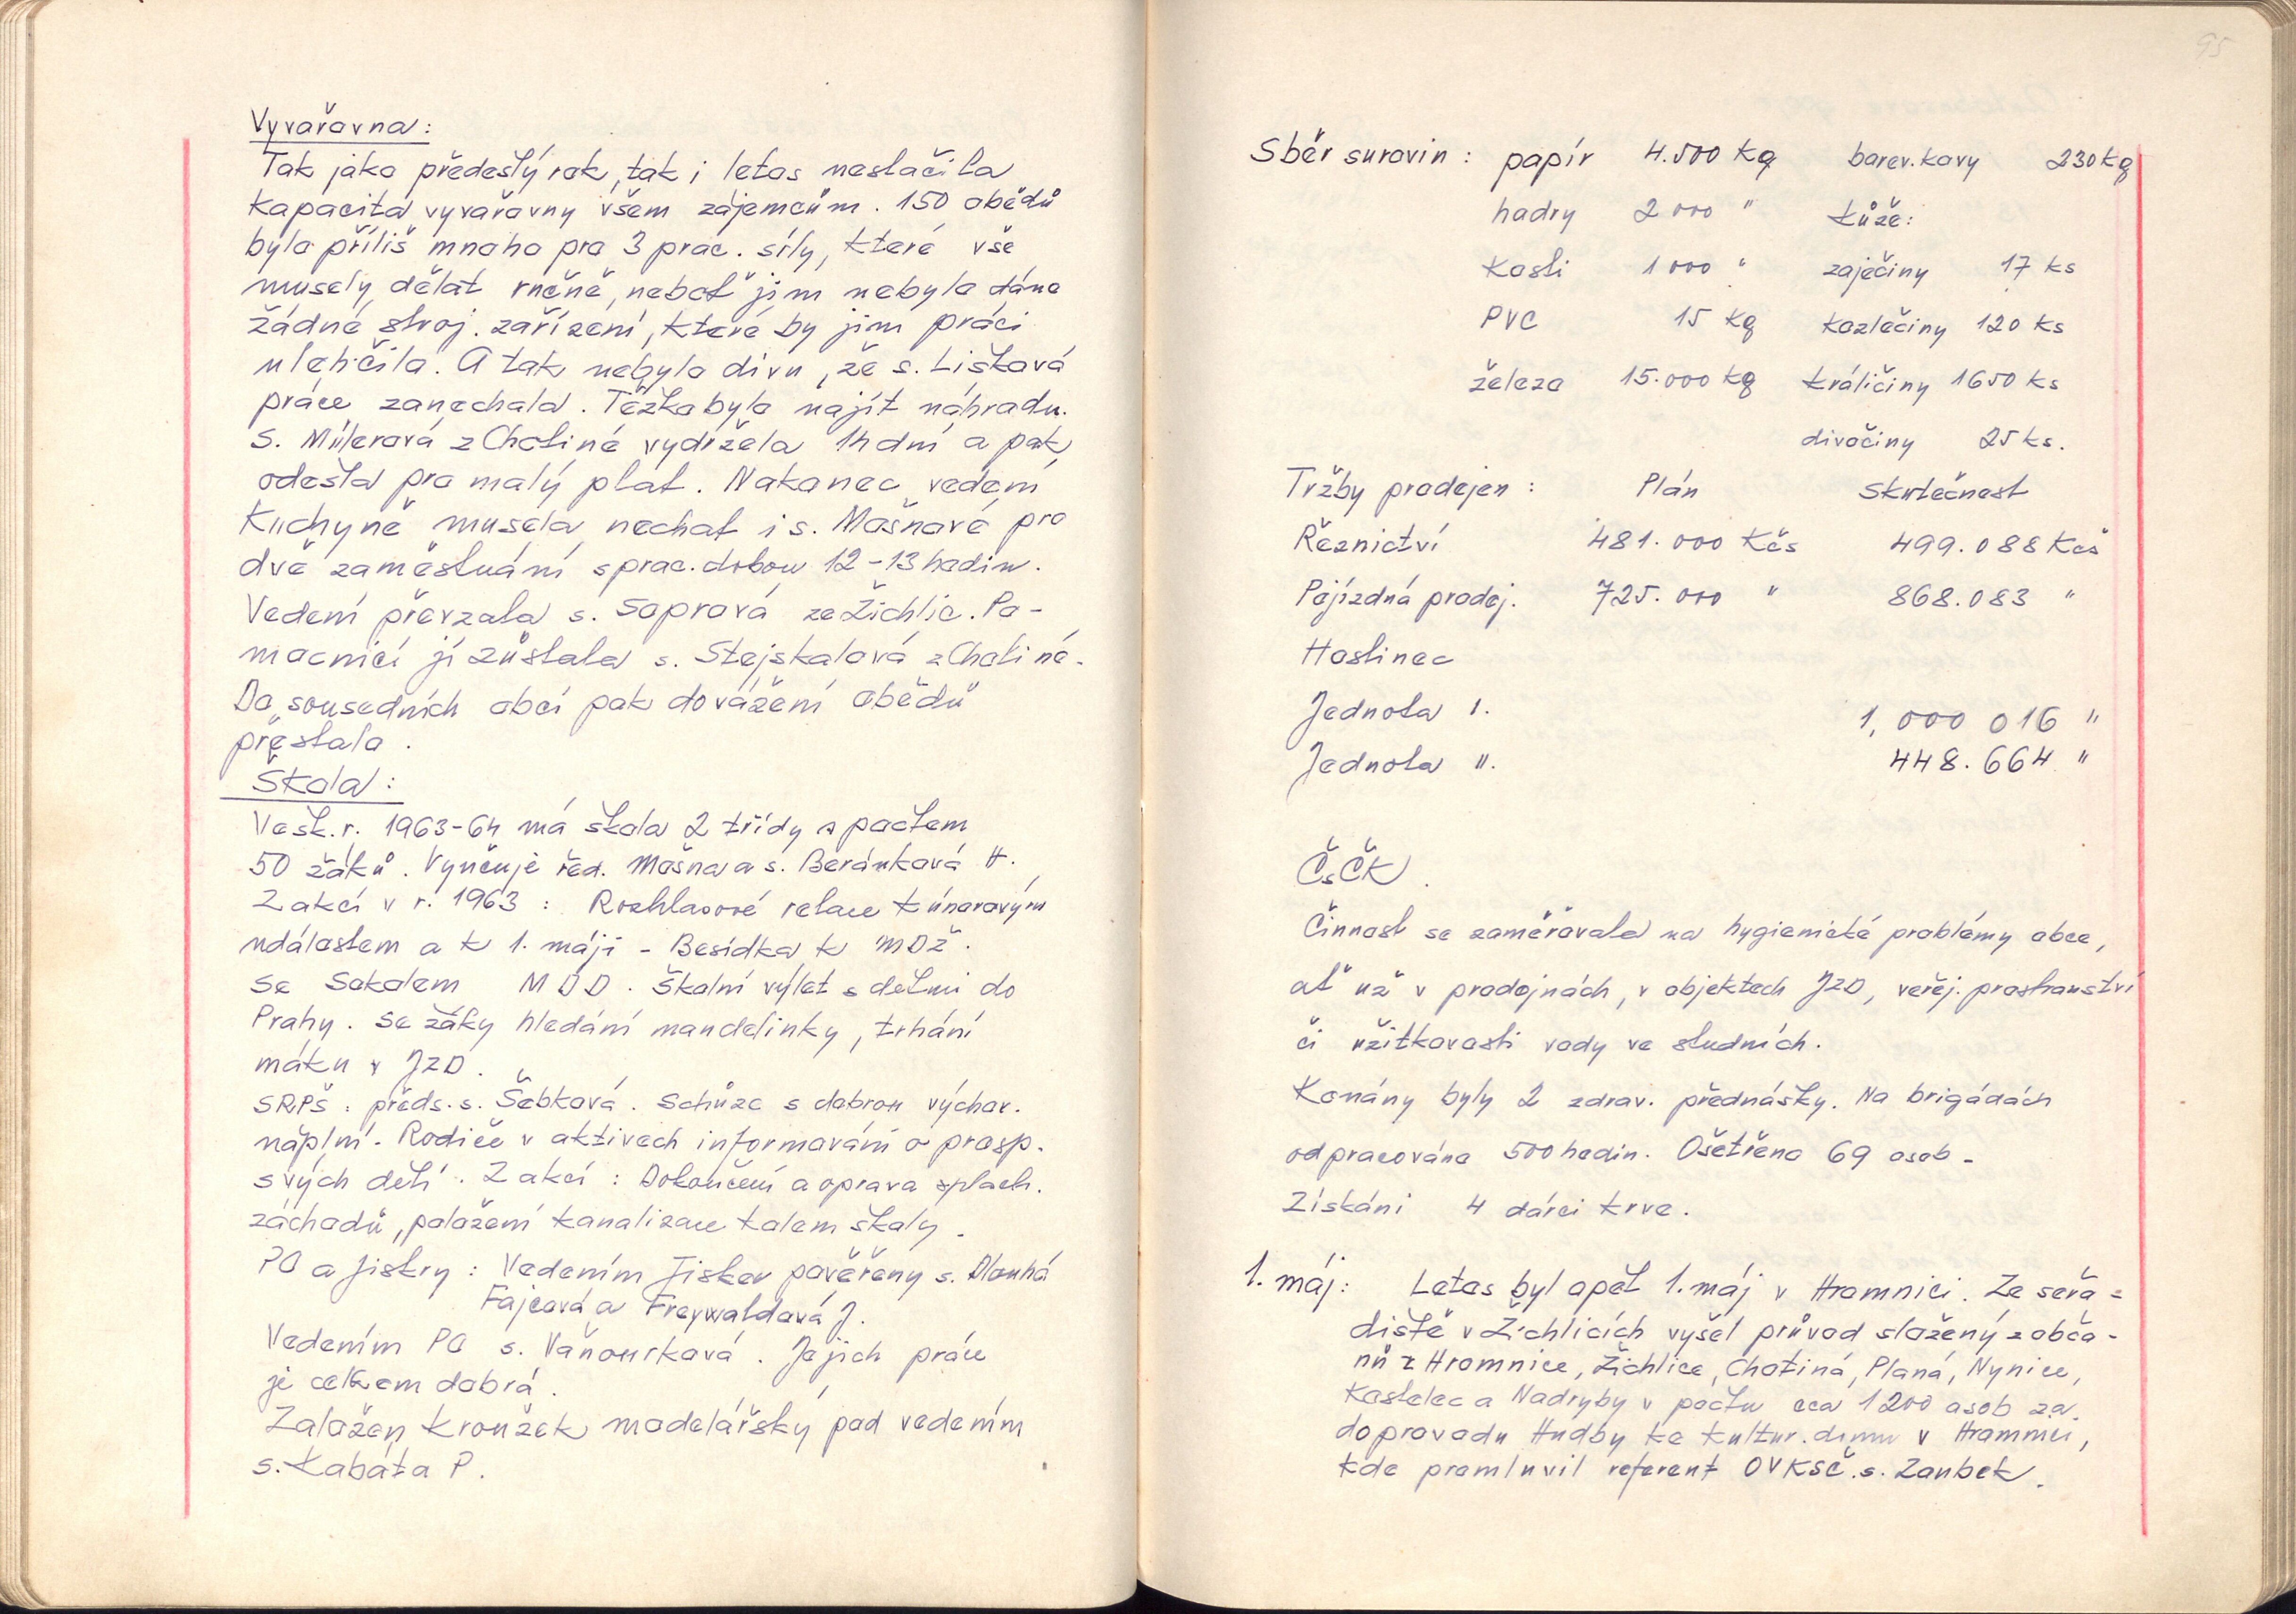 Vyvařovna:
Tak jako předešlý rok, tak i letos nestačila
kapacita vyvařovny všem zájemcům. 150 obědů
bylo příliš mnoho pro 3 prac. síly, které vše
musely dělat ručně, neboť jim nebylo dáno
žádné stroj. zařízení, které by jim práci
ulehčilo. A tak nebylo divu, že s. Lišková
práce zanechala. Těžko bylo najít náhradu.
S. Müllerová z Chotiné vydržela 14 dní a pak
odešla pro malý plat. Nakonec vedení
kuchyně musela nechat i s. Mošnová pro
dvě zaměstnání s prac. dobou 12-13 hodin.
Vedení převzala s. Soprová ze Žichlic. Po-
mocnicí jí zůstala s. Stejskalová z Chotiné.
Do sousedních obcí pak dovážení obědů
přestalo.
Škola:
Ve šk. r. 1963-64 má škola 2 třídy s počtem
50 žáků. Vyučuje řed. Mošna a s. Beránková H.
Z akcí v r. 1963: Rozhlasové relace k únorovým
událostem a k 1. máji - Besídka k MDŽ.
se Sokolem MDD. Školní výlet s dětmi do
Prahy. Se žáky hledání mandelinky, trhání
máku v JZD.
SRPŠ: předs. s. Šebková. Schůze s dobrou výchov.
náplní. Rodiče v aktivech informováni o prosp.
svých dětí. Z akcí: Dokončení a oprava splach.
záchodů, položení kanalizace kolem školy.
PO a Jiskry: Vedením Jisker pověřeny s. Dlouhá
Fajcová a Freywaldová J.
Vedením PO s. Vaňourková. Jejich práce
je celkem dobrá.
Založen kroužek modelářský pod vedením
s. Kabáta P.
95
Sběr surovin: papír 4.500 kg barev. kovy 230 kg
hadry 2 000 " kůže:
kosti 1 000 " zaječiny 17 ks
PVC 15 kg kozlečiny 120 ks
železo 15.000 kg králičiny 1650 ks
divočiny 25 ks.
Tržby prodejen: Plán Skutečnost
Řeznictví 481.000 Kčs 499.088 Kčs
Pojízdná prodej. 725.000 " 868.083 "
Hostinec
Jednota I. 1,000 016 "
Jednota II. 448.664 "
ČsČK.
Činnost se zaměřovala na hygienické problémy obce,
ať už v prodejnách, v objektech JZD, veřej. prostranství
či užitkovosti vody ve studních.
Konány byly 2 zdrav. přednášky. Na brigádách
odpracováno 500 hodin. Ošetřeno 69 osob.
Získáni 4 dárci krve.
1. máj: Letos byl opět 1. máj v Hromnici. Ze seřa=
diště v Žichlicích vyšel průvod složený z obča-
nů z Hromnice, Žichlice, Chotiná, Planá, Nynice,
Kostelec a Nadryby v počtu cca 1200 osob za
doprovodu Hudby ke kultur. domu v Hromnici,
kde promluvil referent OVKSČ. s. Zoubek.